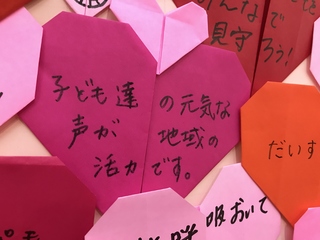 んなで
見守ろう!
子ども達の元気な
声が地域の
活力です。
だいす
吸おいて